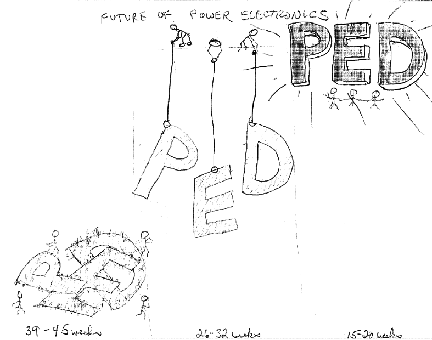 FUTURE OF POWER ELECTRONICS
PED
P
E
D
PED
39-45 weeks
26-32 weeks
15-20 weeks